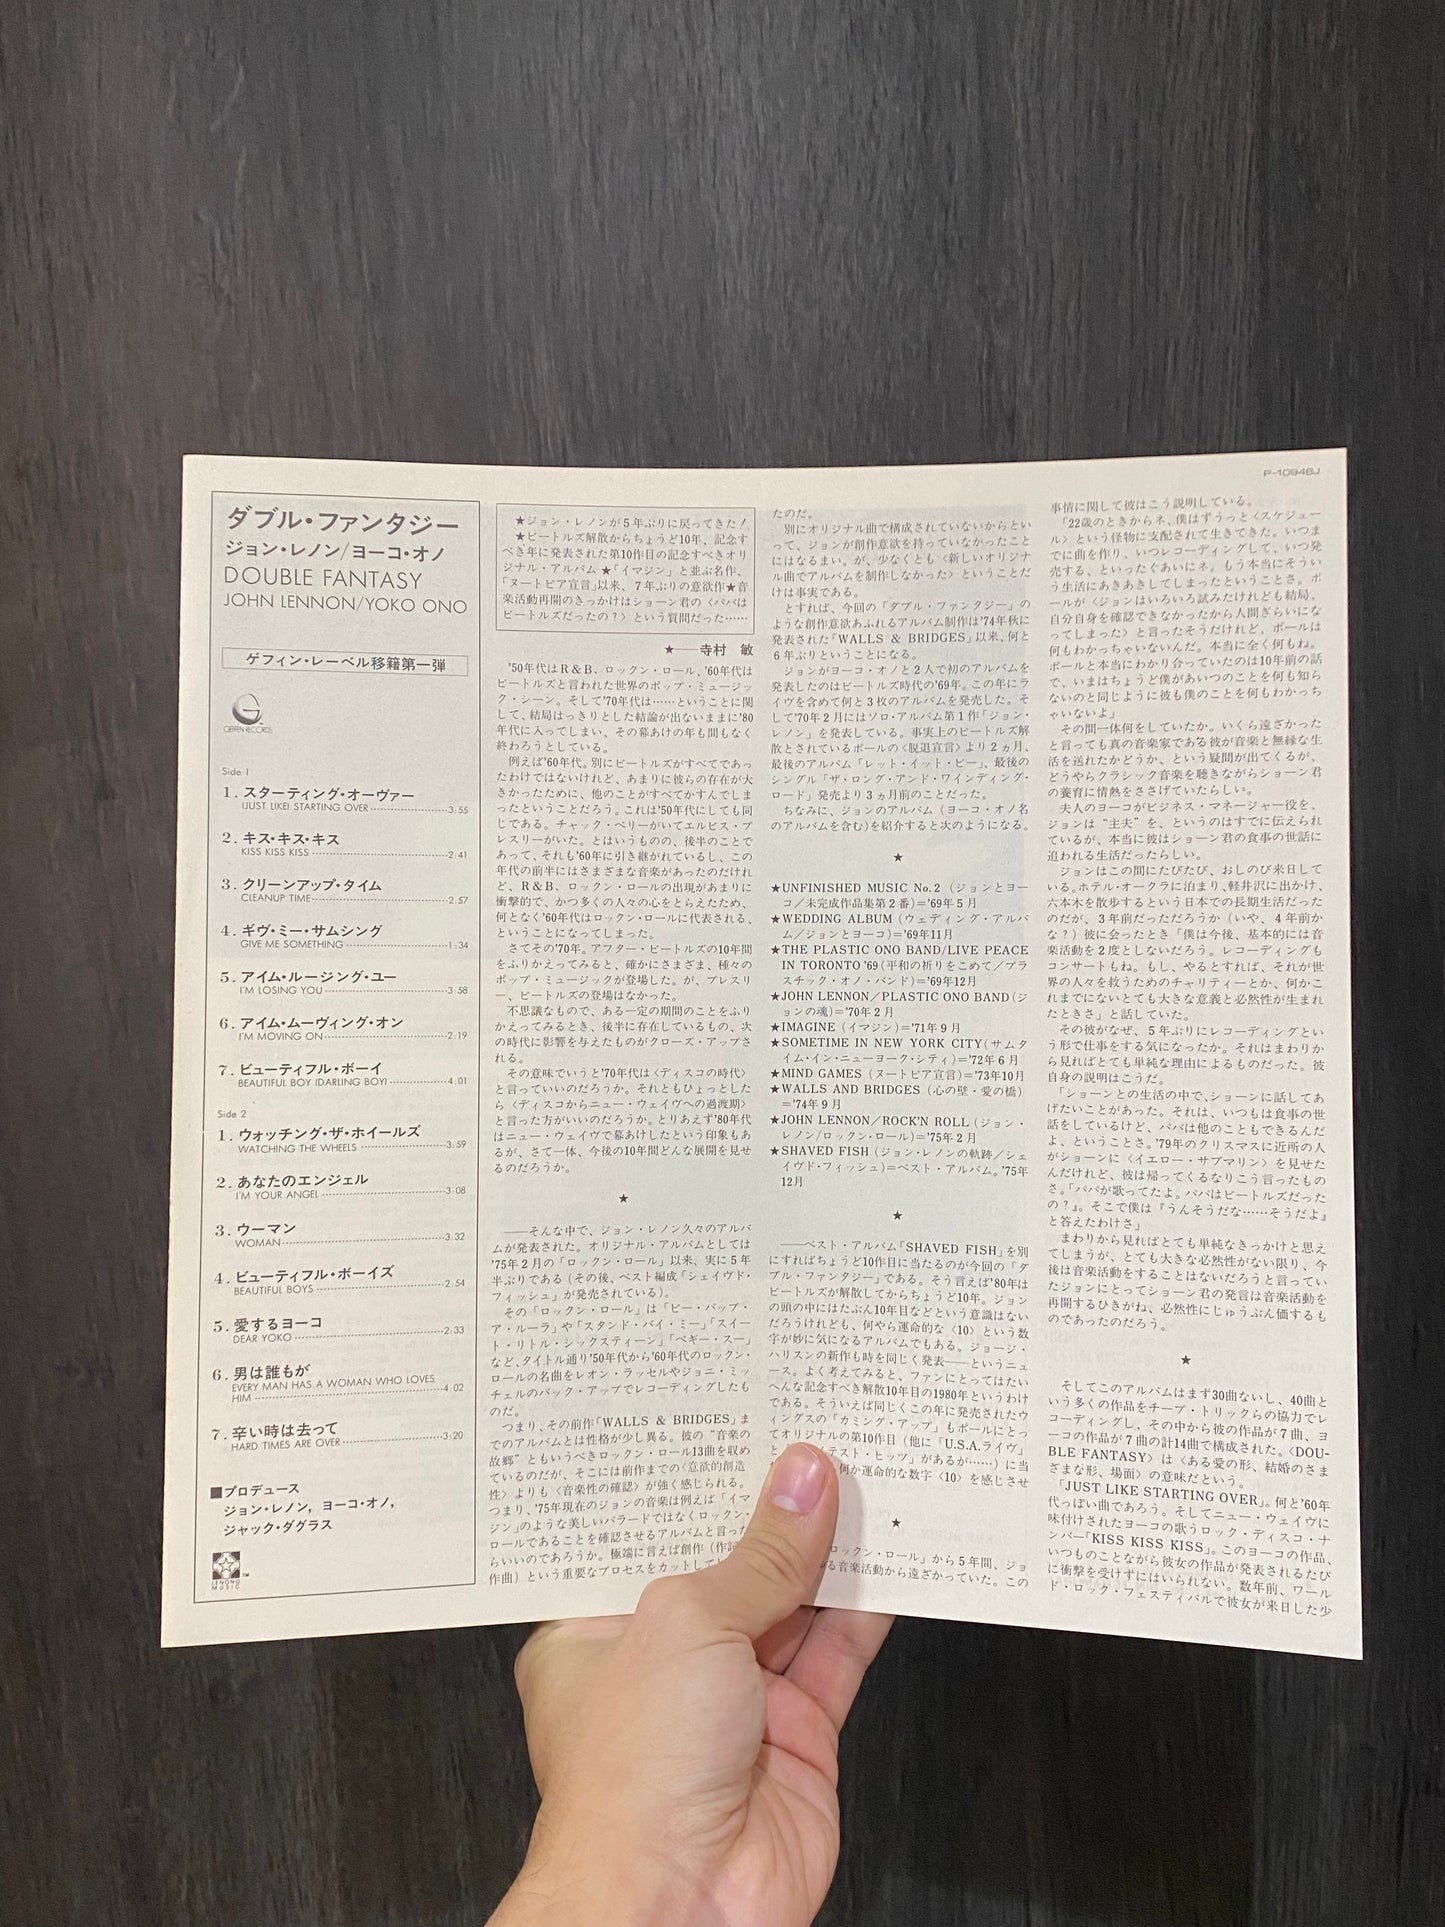 P-10948J
ダブル・ファンタジー
ジョン・レノン/ヨーコ・オノ
DOUBLE FANTASY
JOHN LENNON/YOKO ONO
ゲフィン・レーベル移籍第一弾
GEFFEN RECORDS
Side 1
1. スターティング・オーヴァー
(JUST LIKE) STARTING OVER 3:55
2. キス・キス・キス
KISS KISS KISS 2:41
3. クリーンアップ・タイム
CLEANUP TIME 2:57
4. ギヴ・ミー・サムシング
GIVE ME SOMETHING 1:34
5. アイム・ルージング・ユー
I'M LOSING YOU 3:58
6. アイム・ムーヴィング・オン
I'M MOVING ON 2:19
7. ビューティフル・ボーイ
BEAUTIFUL BOY (DARLING BOY) 4:01
Side 2
1. ウォッチング・ザ・ホイールズ
WATCHING THE WHEELS 3:59
2. あなたのエンジェル
I'M YOUR ANGEL 3:08
3. ウーマン
WOMAN 3:32
4. ビューティフル・ボーイズ
BEAUTIFUL BOYS 2:54
5. 愛するヨーコ
DEAR YOKO 2:33
6. 男は誰もが
EVERY MAN HAS A WOMAN WHO LOVES
HIM 4:02
7. 辛い時は去って
HARD TIMES ARE OVER 3:20
■プロデュース
ジョン・レノン, ヨーコ・オノ,
ジャック・ダグラス
LENONO
MUSIC
TM
★ジョン・レノンが5年ぶりに戻ってきた!
★ビートルズ解散からちょうど10年、記念す
べき年に発表された第10作目の記念すべきオリ
ジナル・アルバム★「イマジン」と並ぶ名作、
「ヌートピア宣言」以来、7年ぶりの意欲作★音
楽活動再開のきっかけはショーン君の〈パパは
ビートルズだったの?〉という質問だった……
★──寺村 敏
'50年代はR&B、ロックン・ロール、'60年代は
ビートルズと言われた世界のポップ・ミュージッ
ク・シーン。そして'70年代は……ということに関
して、結局はっきりとした結論が出ないままに'80
年代に入ってしまい、その幕あけの年も間もなく
終わろうとしている。
例えば'60年代。別にビートルズがすべてであっ
たわけではないけれど、あまりに彼らの存在が大
きかったために、他のことがすべてかすんでしま
ったということだろう。これは'50年代にしても同
じである。チャック・ベリーがいてエルビス・プ
レスリーがいた。とはいうものの、後半のことで
あって、それも'60年に引き継がれているし、この
年代の前半にはさまざまな音楽があったのだけれ
ど、R&B、ロックン・ロールの出現があまりに
衝撃的で、かつ多くの人々の心をとらえたため、
何となく'60年代はロックン・ロールに代表される、
ということになってしまった。
さてその'70年。アフター・ビートルズの10年間
をふりかえってみると、確かにさまざま、種々の
ポップ・ミュージックが登場した。が、プレスリ
ー、ビートルズの登場はなかった。
不思議なもので、ある一定の期間のことをふり
かえってみるとき、後半に存在しているもの、次
の時代に影響を与えたものがクローズ・アップさ
れる。
その意味でいうと'70年代は〈ディスコの時代〉
と言っていいのだろうか。それともひょっとした
ら〈ディスコからニュー・ウェイヴへの過渡期〉
と言った方がいいのだろうか。とりあえず'80年代
はニュー・ウェイヴで幕あけしたという印象もあ
るが、さて一体、今後の10年間どんな展開を見せ
るのだろうか。
★
──そんな中で、ジョン・レノン久々のアルバ
ムが発表された。オリジナル・アルバムとしては
'75年2月の「ロックン・ロール」以来、実に5年
半ぶりである（その後、ベスト編成「シェイヴド・
フィッシュ」が発売されている）。
その「ロックン・ロール」は「ビー・バップ・
ア・ルーラ」や「スタンド・バイ・ミー」「スイー
ト・リトル・シックスティーン」「ペギー・スー」
など、タイトル通り'50年代から'60年代のロックン・
ロールの名曲をレオン・ラッセルやジョニ・ミッ
チェルのバック・アップでレコーディングしたも
のだ。
つまり、その前作「WALLS & BRIDGES」ま
でのアルバムとは性格が少し異る。彼の"音楽の
故郷"ともいうべきロックン・ロール13曲を収め
ているのだが、そこには前作までの〈意欲的創造
性〉よりも〈音楽性の確認〉が強く感じられる。
つまり、'75年現在のジョンの音楽は例えば「イマ
ジン」のような美しいバラードではなくロックン・
ロールであることを確認させるアルバムと言った
らいいのであろうか。極端に言えば創作（作詞
作曲）という重要なプロセスをカットして
たのだ。
別にオリジナル曲で構成されていないからとい
って、ジョンが創作意欲を持っていなかったこと
にはなるまい。が、少なくとも〈新しいオリジナ
ル曲でアルバムを制作しなかった〉ということだ
けは事実である。
とすれば、今回の「ダブル・ファンタジー」の
ような創作意欲あふれるアルバム制作は'74年秋に
発表された「WALLS & BRIDGES」以来、何と
6年ぶりということになる。
ジョンがヨーコ・オノと2人で初のアルバムを
発表したのはビートルズ時代の'69年。この年にラ
イヴを含めて何と3枚のアルバムを発売した。そ
して'70年2月にはソロ・アルバム第1作「ジョン・
レノン」を発表している。事実上のビートルズ解
散とされているポールの〈脱退宣言〉より2ヵ月、
最後のアルバム「レット・イット・ビー」、最後の
シングル「ザ・ロング・アンド・ワインディング・
ロード」発売より3ヵ月前のことだった。
ちなみに、ジョンのアルバム（ヨーコ・オノ名
のアルバムを含む）を紹介すると次のようになる。
★
★UNFINISHED MUSIC No.2（ジョンとヨー
コ／未完成作品集第2番）='69年5月
★WEDDING ALBUM（ウェディング・アルバ
ム／ジョンとヨーコ）='69年11月
★THE PLASTIC ONO BAND/LIVE PEACE
IN TORONTO '69（平和の祈りをこめて／プラ
スチック・オノ・バンド）='69年12月
★JOHN LENNON／PLASTIC ONO BAND（ジ
ョンの魂）='70年2月
★IMAGINE（イマジン）='71年9月
★SOMETIME IN NEW YORK CITY（サムタ
イム・イン・ニューヨーク・シティ）='72年6月
★MIND GAMES（ヌートピア宣言）='73年10月
★WALLS AND BRIDGES（心の壁・愛の橋）
='74年9月
★JOHN LENNON／ROCK'N ROLL（ジョン・
レノン/ロックン・ロール）='75年2月
★SHAVED FISH（ジョン・レノンの軌跡／シェ
イヴド・フィッシュ）=ベスト・アルバム。'75年
12月
★
──ベスト・アルバム「SHAVED FISH」を別
にすればちょうど10作目に当たるのが今回の「ダ
ブル・ファンタジー」である。そう言えば'80年は
ビートルズが解散してからちょうど10年。ジョン
の頭の中にはたぶん10年目などという意識はない
だろうけれども、何やら運命的な〈10〉という数
字が妙に気になるアルバムでもある。ジョージ・
ハリスンの新作も時を同じく発表──というニュ
ース。よく考えてみると、ファンにとってはたい
へんな記念すべき解散10年目の1980年というわけ
である。そういえば同じくこの年に発売されたウ
ィングスの「カミング・アップ」もポールにとっ
てオリジナルの第10作目（他に「U.S.A.ライヴ」
と テスト・ヒッツ」があるが……）に当
何か運命的な数字〈10〉を感じさせ
★
ロックン・ロール」から5年間、ジョ
る音楽活動から遠ざかっていた。この
事情に関して彼はこう説明している。
「22歳のときからネ、僕はずうっと〈スケジュー
ル〉という怪物に支配されて生きてきた。いつま
でに曲を作り、いつレコーディングして、いつ発
売する、といったぐあいにネ。もう本当にそうい
う生活にあきあきしてしまったということさ。ポ
ールが〈ジョンはいろいろ試みたけれども結局、
自分自身を確認できなかったから人間ぎらいにな
ってしまった〉と言ったそうだけれど、ポールは
何もわかっちゃいないんだ。本当に全く何もね。
ポールと本当にわかり合っていたのは10年前の話
で、いまはちょうど僕があいつのことを何も知ら
ないのと同じように彼も僕のことを何もわかっち
ゃいないよ」
その間一体何をしていたか。いくら遠ざかった
と言っても真の音楽家である彼が音楽と無縁な生
活を送れたかどうか、という疑問が出てくるが、
どうやらクラシック音楽を聴きながらショーン君
の養育に情熱をささげていたらしい。
夫人のヨーコがビジネス・マネージャー役を、
ジョンは"主夫"を、というのはすでに伝えられ
ているが、本当に彼はショーン君の食事の世話に
追われる生活だったらしい。
ジョンはこの間にたびたび、おしのび来日して
いる。ホテル・オークラに泊まり、軽井沢に出かけ、
六本木を散歩するという日本での長期生活だった
のだが、3年前だっただろうか（いや、4年前か
な？）彼に会ったとき「僕は今後、基本的には音
楽活動を2度としないだろう。レコーディングも
コンサートもね。もし、やるとすれば、それが世
界の人々を救うためのチャリティーとか、何かこ
れまでにないとても大きな意義と必然性が生まれ
たときさ」と話していた。
その彼がなぜ、5年ぶりにレコーディングとい
う形で仕事をする気になったか。それはまわりか
ら見ればとても単純な理由によるものだった。彼
自身の説明はこうだ。
「ショーンとの生活の中で、ショーンに話してあ
げたいことがあった。それは、いつもは食事の世
話をしているけど、パパは他のこともできるんだ
よ、ということさ。'79年のクリスマスに近所の人
がショーンに〈イエロー・サブマリン〉を見せた
んだけれど、彼は帰ってくるなりこう言ったもの
さ。「パパが歌ってたよ。パパはビートルズだった
の？』。そこで僕は『うんそうだな……そうだよ』
と答えたわけさ」
まわりから見ればとても単純なきっかけと思え
てしまうが、とても大きな必然性がない限り、今
後は音楽活動をすることはないだろうと言ってい
たジョンにとってショーン君の発言は音楽活動を
再開するひきがね、必然性にじゅうぶん価するも
のであったのだろう。
★
そしてこのアルバムはまず30曲ないし、40曲と
いう多くの作品をチープ・トリックらの協力でレ
コーディングし、その中から彼の作品が7曲、ヨ
ーコの作品が7曲の計14曲で構成された。〈DOU-
BLE FANTASY〉は〈ある愛の形、結婚のさま
ざまな形、場面〉の意味だという。
「JUST LIKE STARTING OVER」。何と'60年
代っぽい曲であろう。そしてニュー・ウェイヴに
味付けされたヨーコの歌うロック・ディスコ・ナ
ンバー「KISS KISS KISS」。このヨーコの作品、
いつものことながら彼女の作品が発表されるたび
に衝撃を受けずにはいられない。数年前、ワール
ド・ロック・フェスティバルで彼女が来日した少